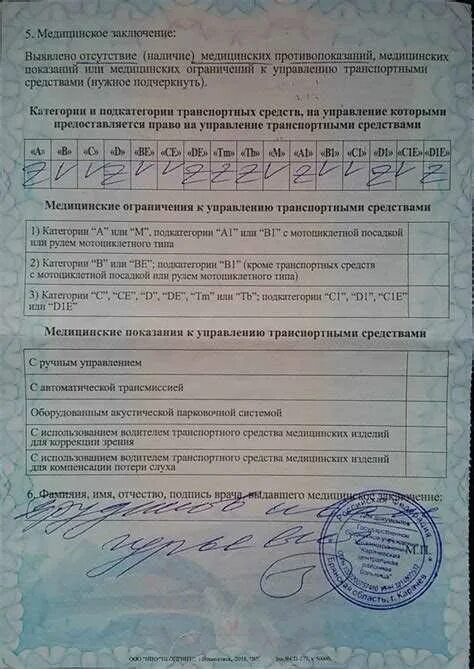 5. Медицинское заключение:
Выявлено отсутствие (наличие) медицинских противопоказаний, медицинских
показаний или медицинских ограничений к управлению транспортными
средствами (нужное подчеркнуть).
Категории и подкатегории транспортных средств, на управление которыми
предоставляется право на управление транспортными средствами
«A» «B» «C» «D» «BE» «CE» «DE» «Tm» «Tb» «M» «A1» «B1» «C1» «D1» «C1E» «D1E»
Медицинские ограничения к управлению транспортными средствами
1) Категории “A” или “M”, подкатегории “A1” или “B1” с мотоциклетной посадкой
или рулем мотоциклетного типа
2) Категории “B” или “BE”; подкатегории “B1” (кроме транспортных средств
с мотоциклетной посадкой или рулем мотоциклетного типа)
3) Категории “C”, “CE”, “D”, “DE”, “Tm” или “Tb”; подкатегории “C1”, “D1”, “C1E”
или “D1E”
Медицинские показания к управлению транспортными средствами
С ручным управлением
С автоматической трансмиссией
Оборудованным акустической парковочной системой
С использованием водителем транспортного средства медицинских изделий
для коррекции зрения
С использованием водителем транспортного средства медицинских изделий
для компенсации потери слуха
6. Фамилия, имя, отчество, подпись врача, выдавшего медицинское заключение:
Российская Федерация
центральная
районная
больница"
Брянская область, г. Карачев
М.П.